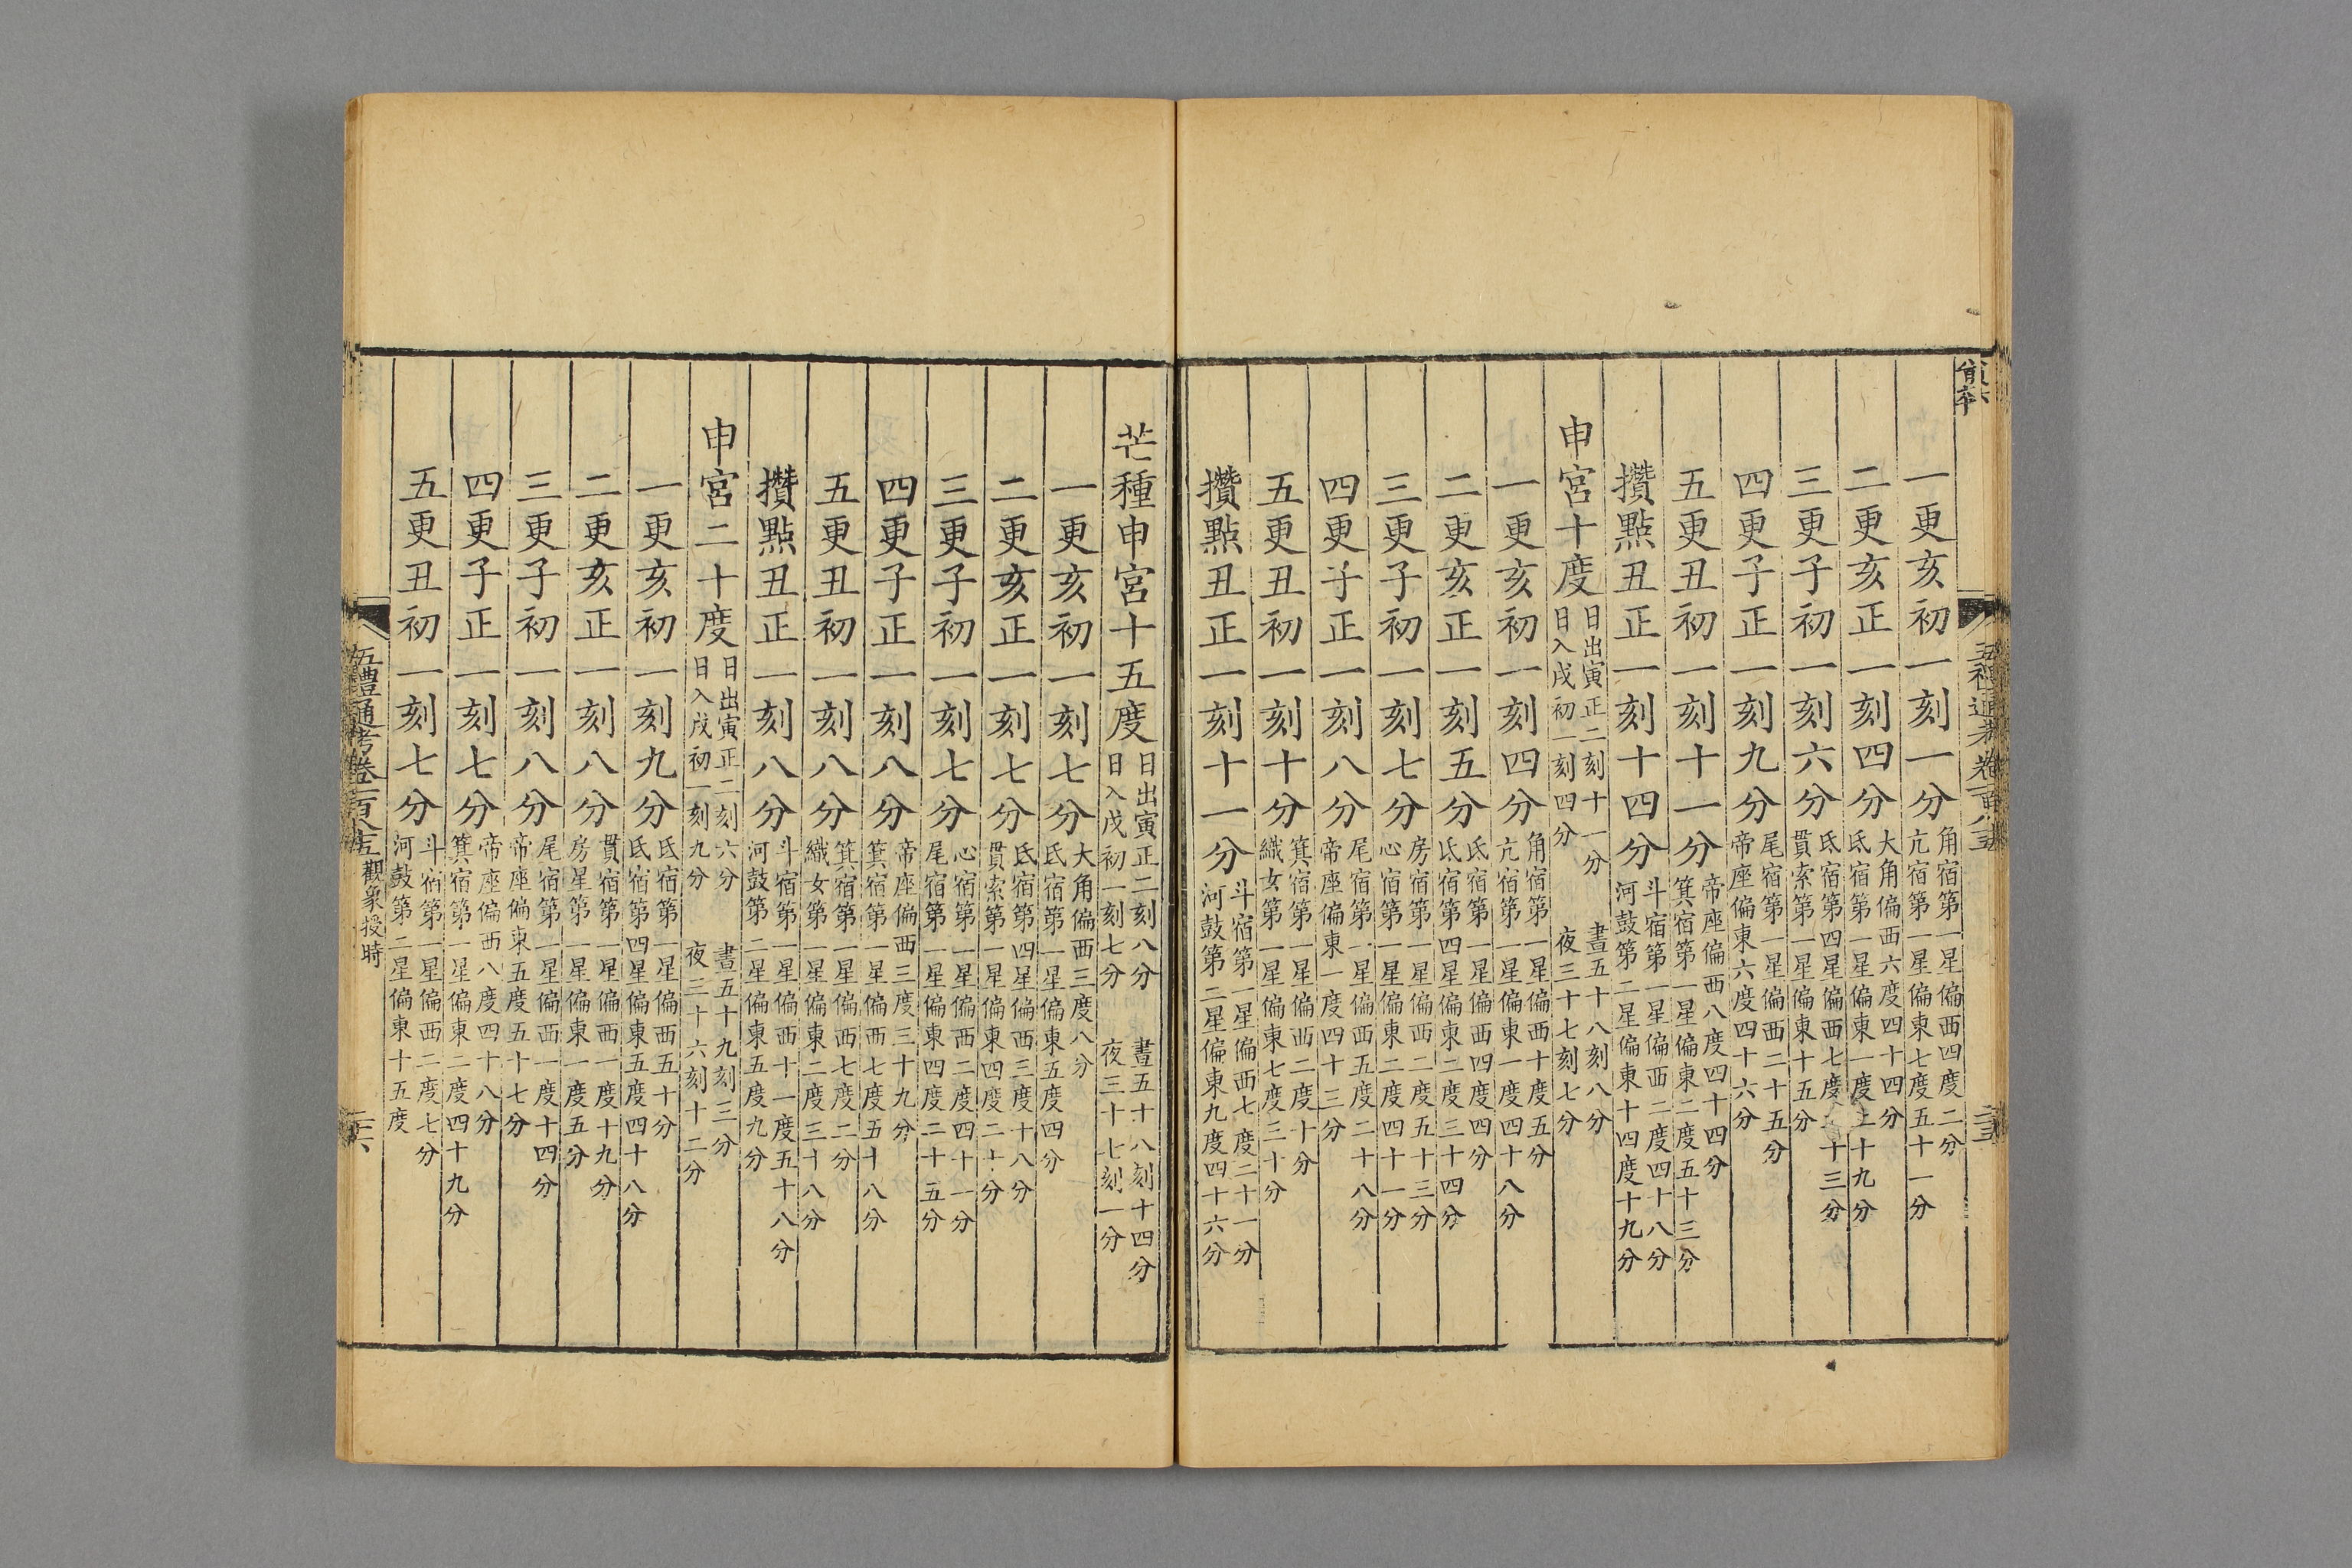 一更亥初一刻一分角宿第一星偏西四度二分
亢宿第一星偏東七度五十一分
二更亥正一刻四分大角偏西六度四十四分
氐宿第一星偏東一度十九分
三更子初一刻六分氐宿第四星偏西七度十三分
貫索第一星偏東十五分
四更子正一刻九分尾宿第一星偏西二十五分
帝座偏東六度四十六分
五更丑初一刻十一分帝座偏西八度四十四分
箕宿第一星偏東二度五十三分
攢點丑正一刻十四分斗宿第一星偏西二度四十八分
河鼓第二星偏東十四度十九分
申宮十度日出寅正二刻十一分 晝五十八刻八分
日入戌初一刻四分 夜三十七刻七分
一更亥初一刻四分角宿第一星偏西十度五分
亢宿第一星偏東一度四十八分
二更亥正一刻五分氐宿第一星偏西四度四分
氐宿第四星偏東二度三十四分
三更子初一刻七分房宿第一星偏西二度五十三分
心宿第一星偏東二度四十一分
四更子正一刻八分尾宿第一星偏西五度二十八分
帝座偏東一度四十三分
五更丑初一刻十分箕宿第一星偏西二度十分
織女第一星偏東七度三十分
攢點丑正一刻十一分斗宿第一星偏西七度二十一分
河鼓第二星偏東九度四十六分
芒種申宮十五度日出寅正二刻八分 晝五十八刻十四分
日入戌初一刻七分 夜三十七刻一分
一更亥初一刻七分大角偏西三度八分
氐宿第一星偏東五度四分
二更亥正一刻七分氐宿第四星偏西三度十八分
貫索第一星偏東四度二十分
三更子初一刻七分心宿第一星偏西二度四十一分
尾宿第一星偏東四度二十五分
四更子正一刻八分帝座偏西三度三十九分
箕宿第一星偏西七度五十八分
五更丑初一刻八分箕宿第一星偏西七度二分
織女第一星偏東二度三十八分
攢點丑正一刻八分斗宿第一星偏西十一度五十八分
河鼓第二星偏東五度九分
申宮二十度日出寅正二刻六分 晝五十九刻三分
日入戌初一刻九分 夜三十六刻十二分
一更亥初一刻九分氐宿第一星偏西五十分
氐宿第四星偏東五度四十八分
二更亥正一刻八分貫索第一星偏西一度十九分
房星第一星偏東一度五分
三更子初一刻八分尾宿第一星偏西一度十四分
帝座偏東五度五十七分
四更子正一刻七分帝座偏西八度四十八分
箕宿第一星偏東二度四十九分
五更丑初一刻七分斗宿第一星偏西二度七分
河鼓第二星偏東十五度
五禮通考卷一百八十五 觀象授時